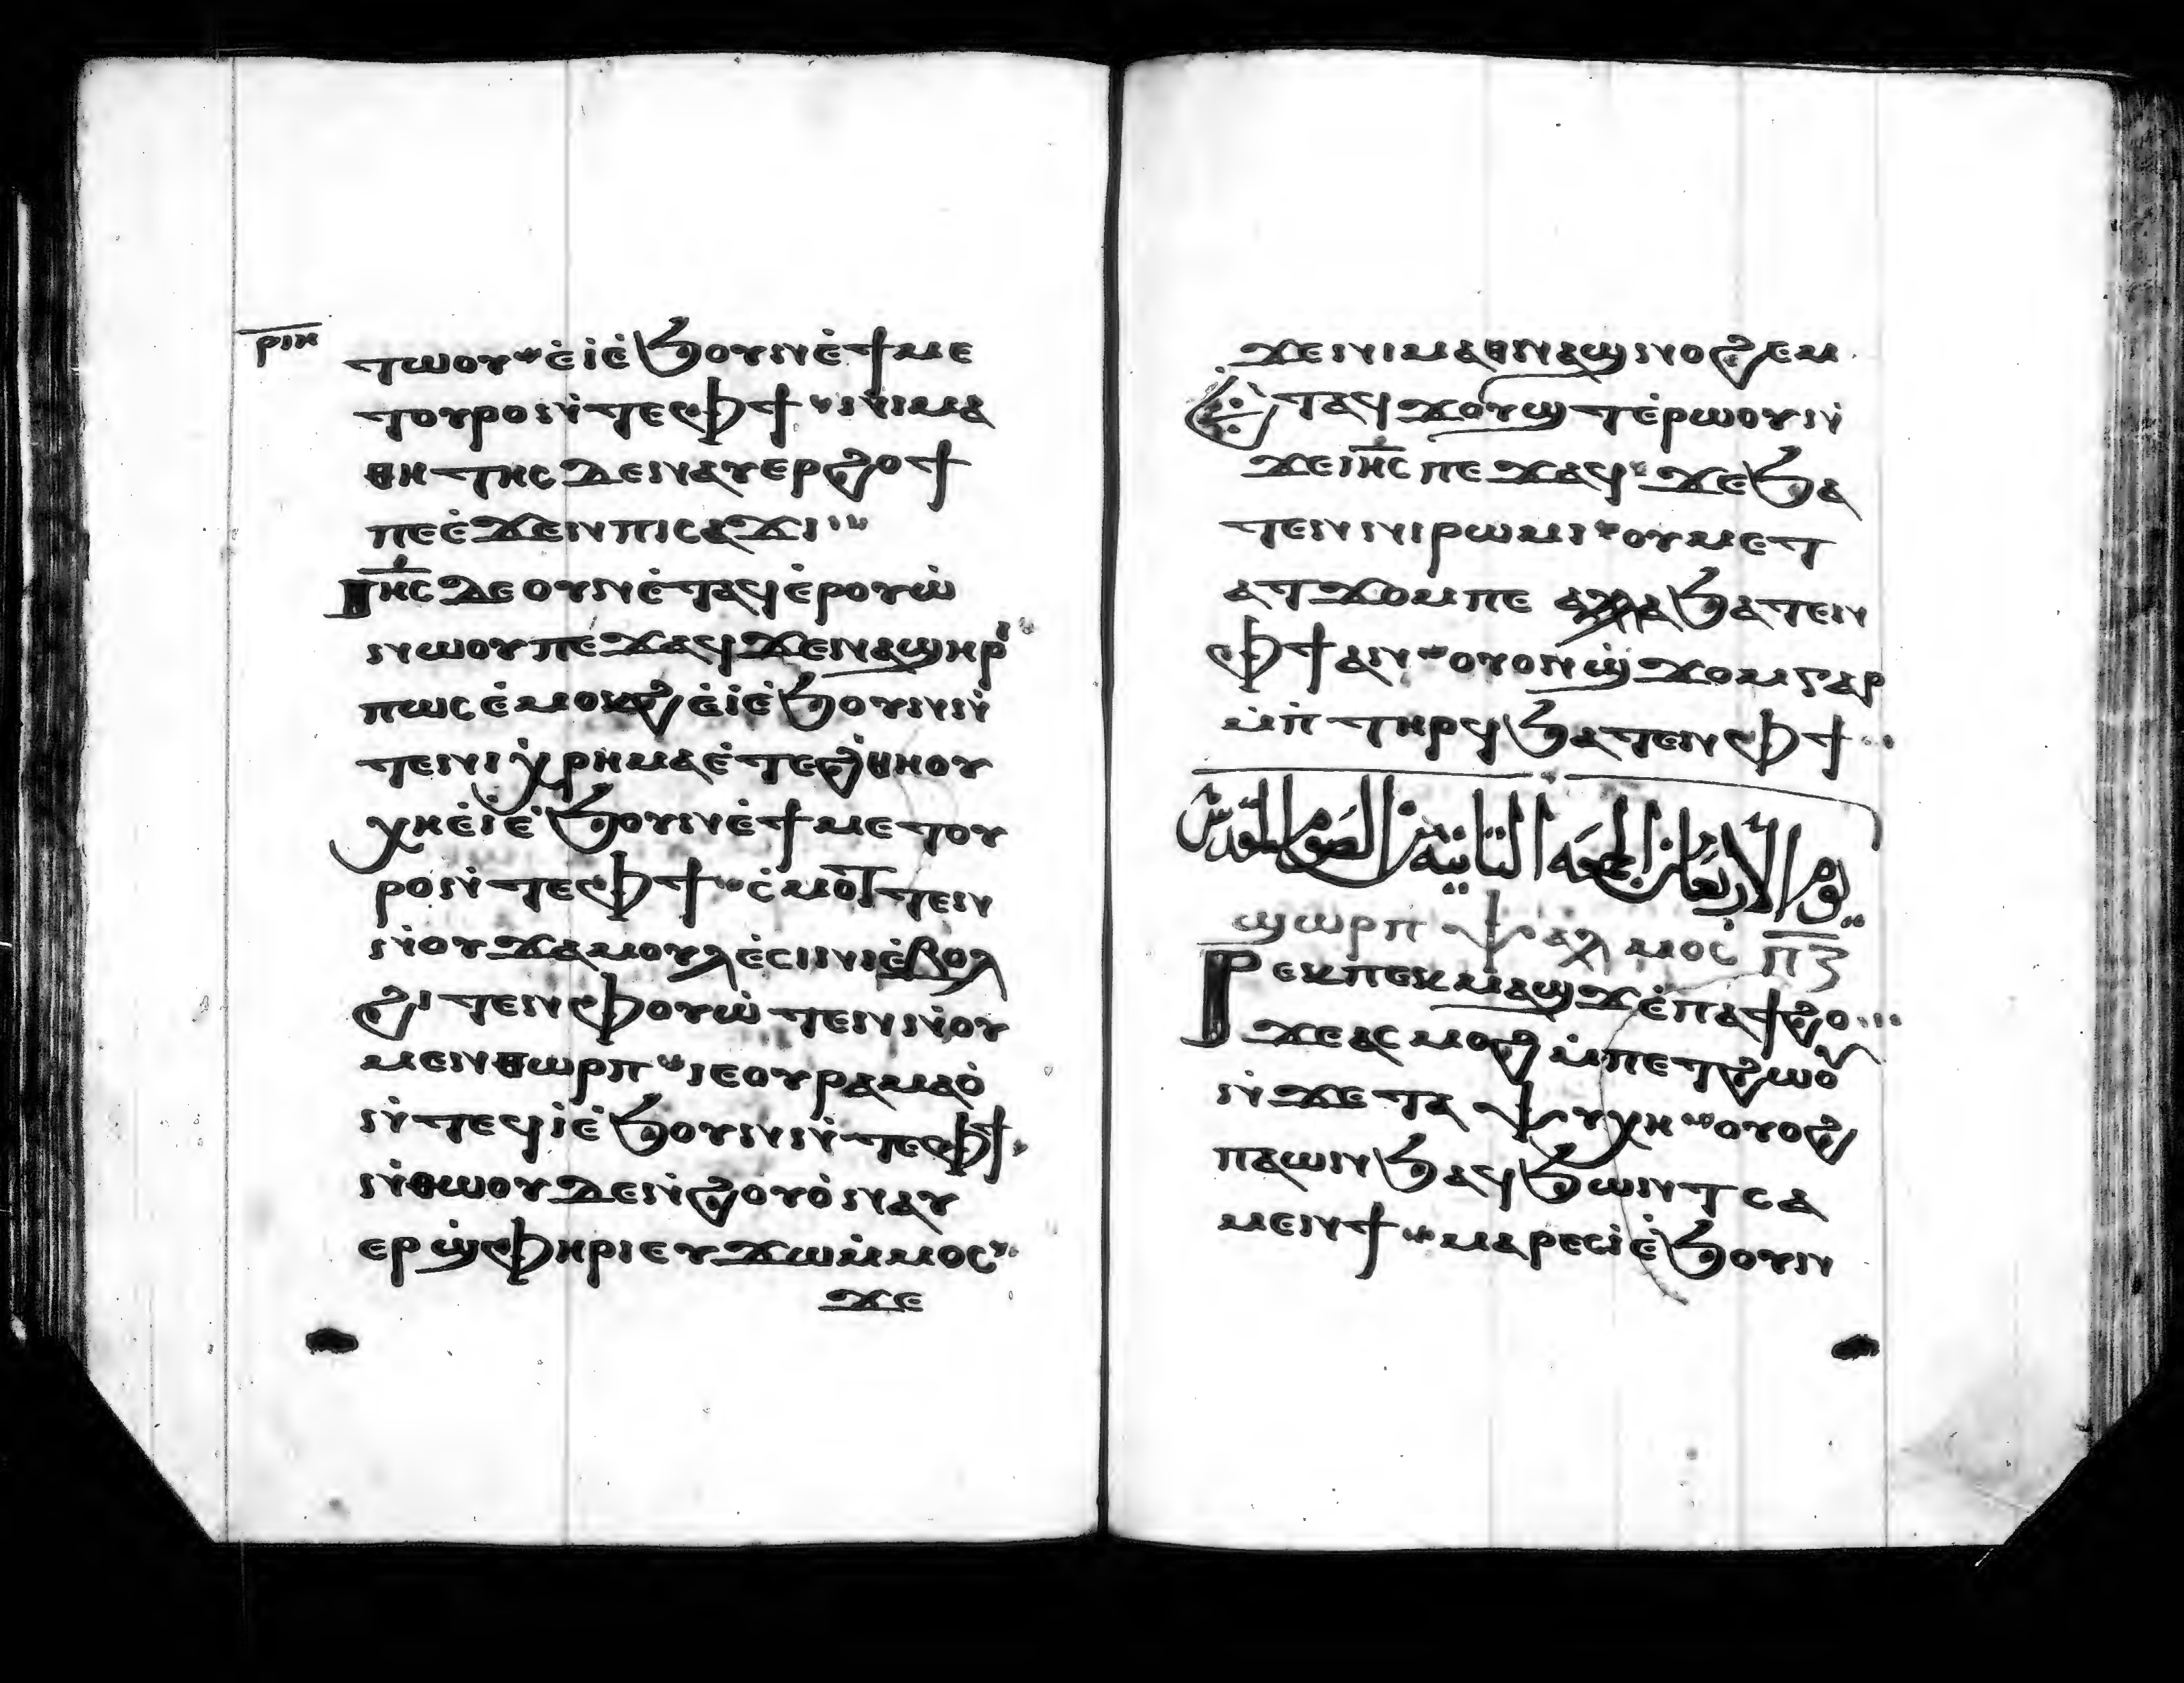 ⲣⲓⲏ
ⲧⲱⲟⲩ ⲉ̇ⲓ̇ⲉ̇ϧⲟⲩⲛⲉ̇ϯⲙⲉ
ⲧⲟⲩⲣⲟⲛ̇ⲧⲉⲫϯ ⲛ̇ⲓⲙⲁ
ⲑⲏⲧⲏⲥ ⲇⲉⲛⲁⲩⲉⲣϩⲟϯ
ⲡⲉⲉ̇ϫⲉⲛⲡⲓⲥⲁϫⲓ
ⲓⲏ̅ⲥ̅ ⲇⲉ ⲟⲩⲛⲉ̇ⲧⲁϥⲉ̇ⲣⲟⲩⲱ̇
ⲛⲱⲟⲩⲡⲉϫⲁϥϫⲉⲛⲁϣⲏⲣⲓ
ⲡⲱⲥ ⲉ̇ⲙⲟⲕϩ ⲉ̇ⲓ̇ⲉ̇ϧⲟⲩⲛⲛ̇
ⲧⲉⲛⲓⲭⲣⲏⲙⲁⲉ̇ⲧⲉϩⲑⲏⲟⲩ
ⲭⲏⲉ̇ⲓ̇ⲉ̇ϧⲟⲩⲛⲉ̇ϯⲙⲉⲧⲟⲩ
ⲣⲟⲛ̇ⲧⲉⲫϯ ⲥ̇ⲙⲟⲧⲉⲛ
ⲛ̇ⲟⲩϫⲁⲙⲟⲩⲗⲉ̇ⲥⲓⲛⲓⲉ̇ⲃⲟⲗ
ϩⲓⲧⲉⲛⲫⲟⲩⲱ̇ⲧⲉⲛⲛ̇ⲟⲩ
ⲙⲉⲛⲑⲱⲣⲡ ⲓⲉⲟⲩⲣⲁⲙⲁⲟ̇
ⲛ̇ⲧⲉϥⲓ̇ⲉ̇ϧⲟⲩⲛⲛ̇ⲧⲉⲫϯ
ⲛ̇ⲑⲱⲟⲩⲇⲉⲛ̇ϩⲟⲩⲟ̇ⲛⲁⲩ
ⲉⲣϣ̇ⲫⲏⲣⲓⲉⲩϫⲱⲙ̇ⲙⲟⲥ
ϫⲉ
ϫⲉⲛⲓⲙⲁⲑⲛⲁϣⲛⲟϩⲉⲙ
ⲉⲧⲁϥϫⲟⲩϣⲧⲉ̇ⲣⲱⲟⲩⲛ̇
ϫⲉⲓⲏ̅ⲥ̅ ⲡⲉϫⲁϥ ϫⲉϧⲁ
ⲧⲉⲛⲛⲓⲣⲱⲙⲓ ⲟⲩⲙⲉⲧ
ⲁⲧϫⲟⲙⲡⲉ ⲁⲗⲗⲁϧⲁⲧⲉⲛ
ⲫϯⲁⲛ ⲟⲩⲟⲛϣ̇ϫⲟⲙⲅⲁⲣ
ⲙ̇ⲡ̇ⲧⲏⲣϥϧⲁⲧⲉⲛⲫϯ
يوم الاربعا من الجمعه الثانيه من الصوم المقدس
ϣⲱⲣⲡ ⲯⲁⲗⲙⲟⲥ ⲡ̅ⲍ̅
ⲣⲉⲕⲡⲉⲕⲙⲁϣϫⲉ̇ⲡⲁϯϩⲟ
ϫⲉⲁⲥⲙⲟϩ ⲙ̇ⲡⲉⲧϩⲱⲟⲩ
ⲛ̇ϫⲉⲧⲁⲯⲩⲭⲏ ⲟⲩⲟϩ
ⲡⲁⲱⲛϧⲁϥϧⲱⲛⲧ ⲥⲁ
ⲙⲉⲛϯ ⲙⲁⲣⲉⲥⲓ̇ⲉ̇ϧⲟⲩⲛ